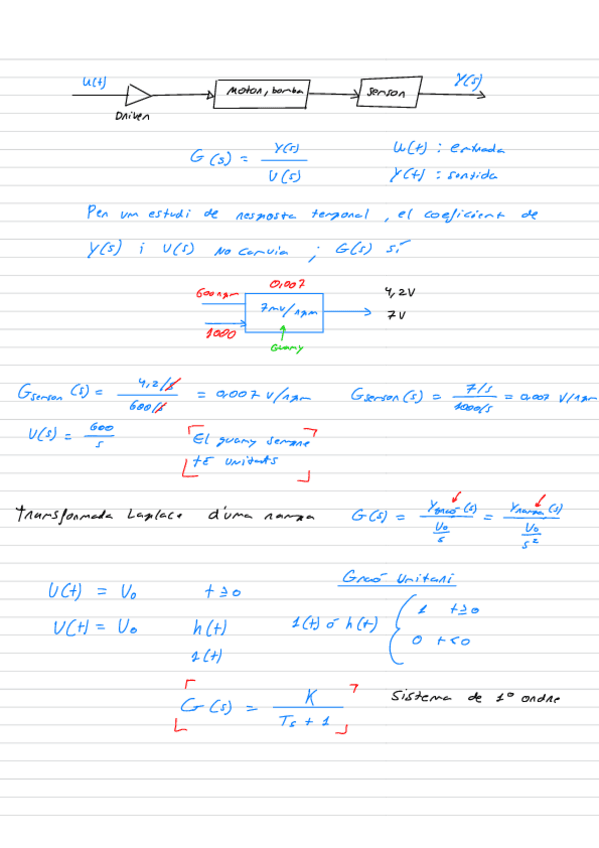 U(t) Y(s)
Driver Motor, bomba Sensor
G(s) = Y(s) / U(s) U(t) : entrada
Y(t) : sortida
Per un estudi de resposta temporal, el coeficient de
Y(s) i U(s) No canvia ; G(s) sí
600rpm 0,007 4,2V
7mv/rpm 7V
1000
Guany
Gsensor(s) = 4,2/s / 600/s = 0,007 V/rpm Gsensor(s) = 7/s / 1000/s = 0,007 V/rpm
U(s) = 600 / s El guany sempre
té unitats
Transformada Laplace d'una rampa G(s) = Ygraó(s) / U0/s = Yrampa(s) / U0/s²
Graó Unitari
U(t) = U0 t≥0 1 t≥0
U(t) = U0 h(t) 1(t) ó h(t)
1(t) 0 t<0
G(s) = K / Ts + 1 Sistema de 1º ordre